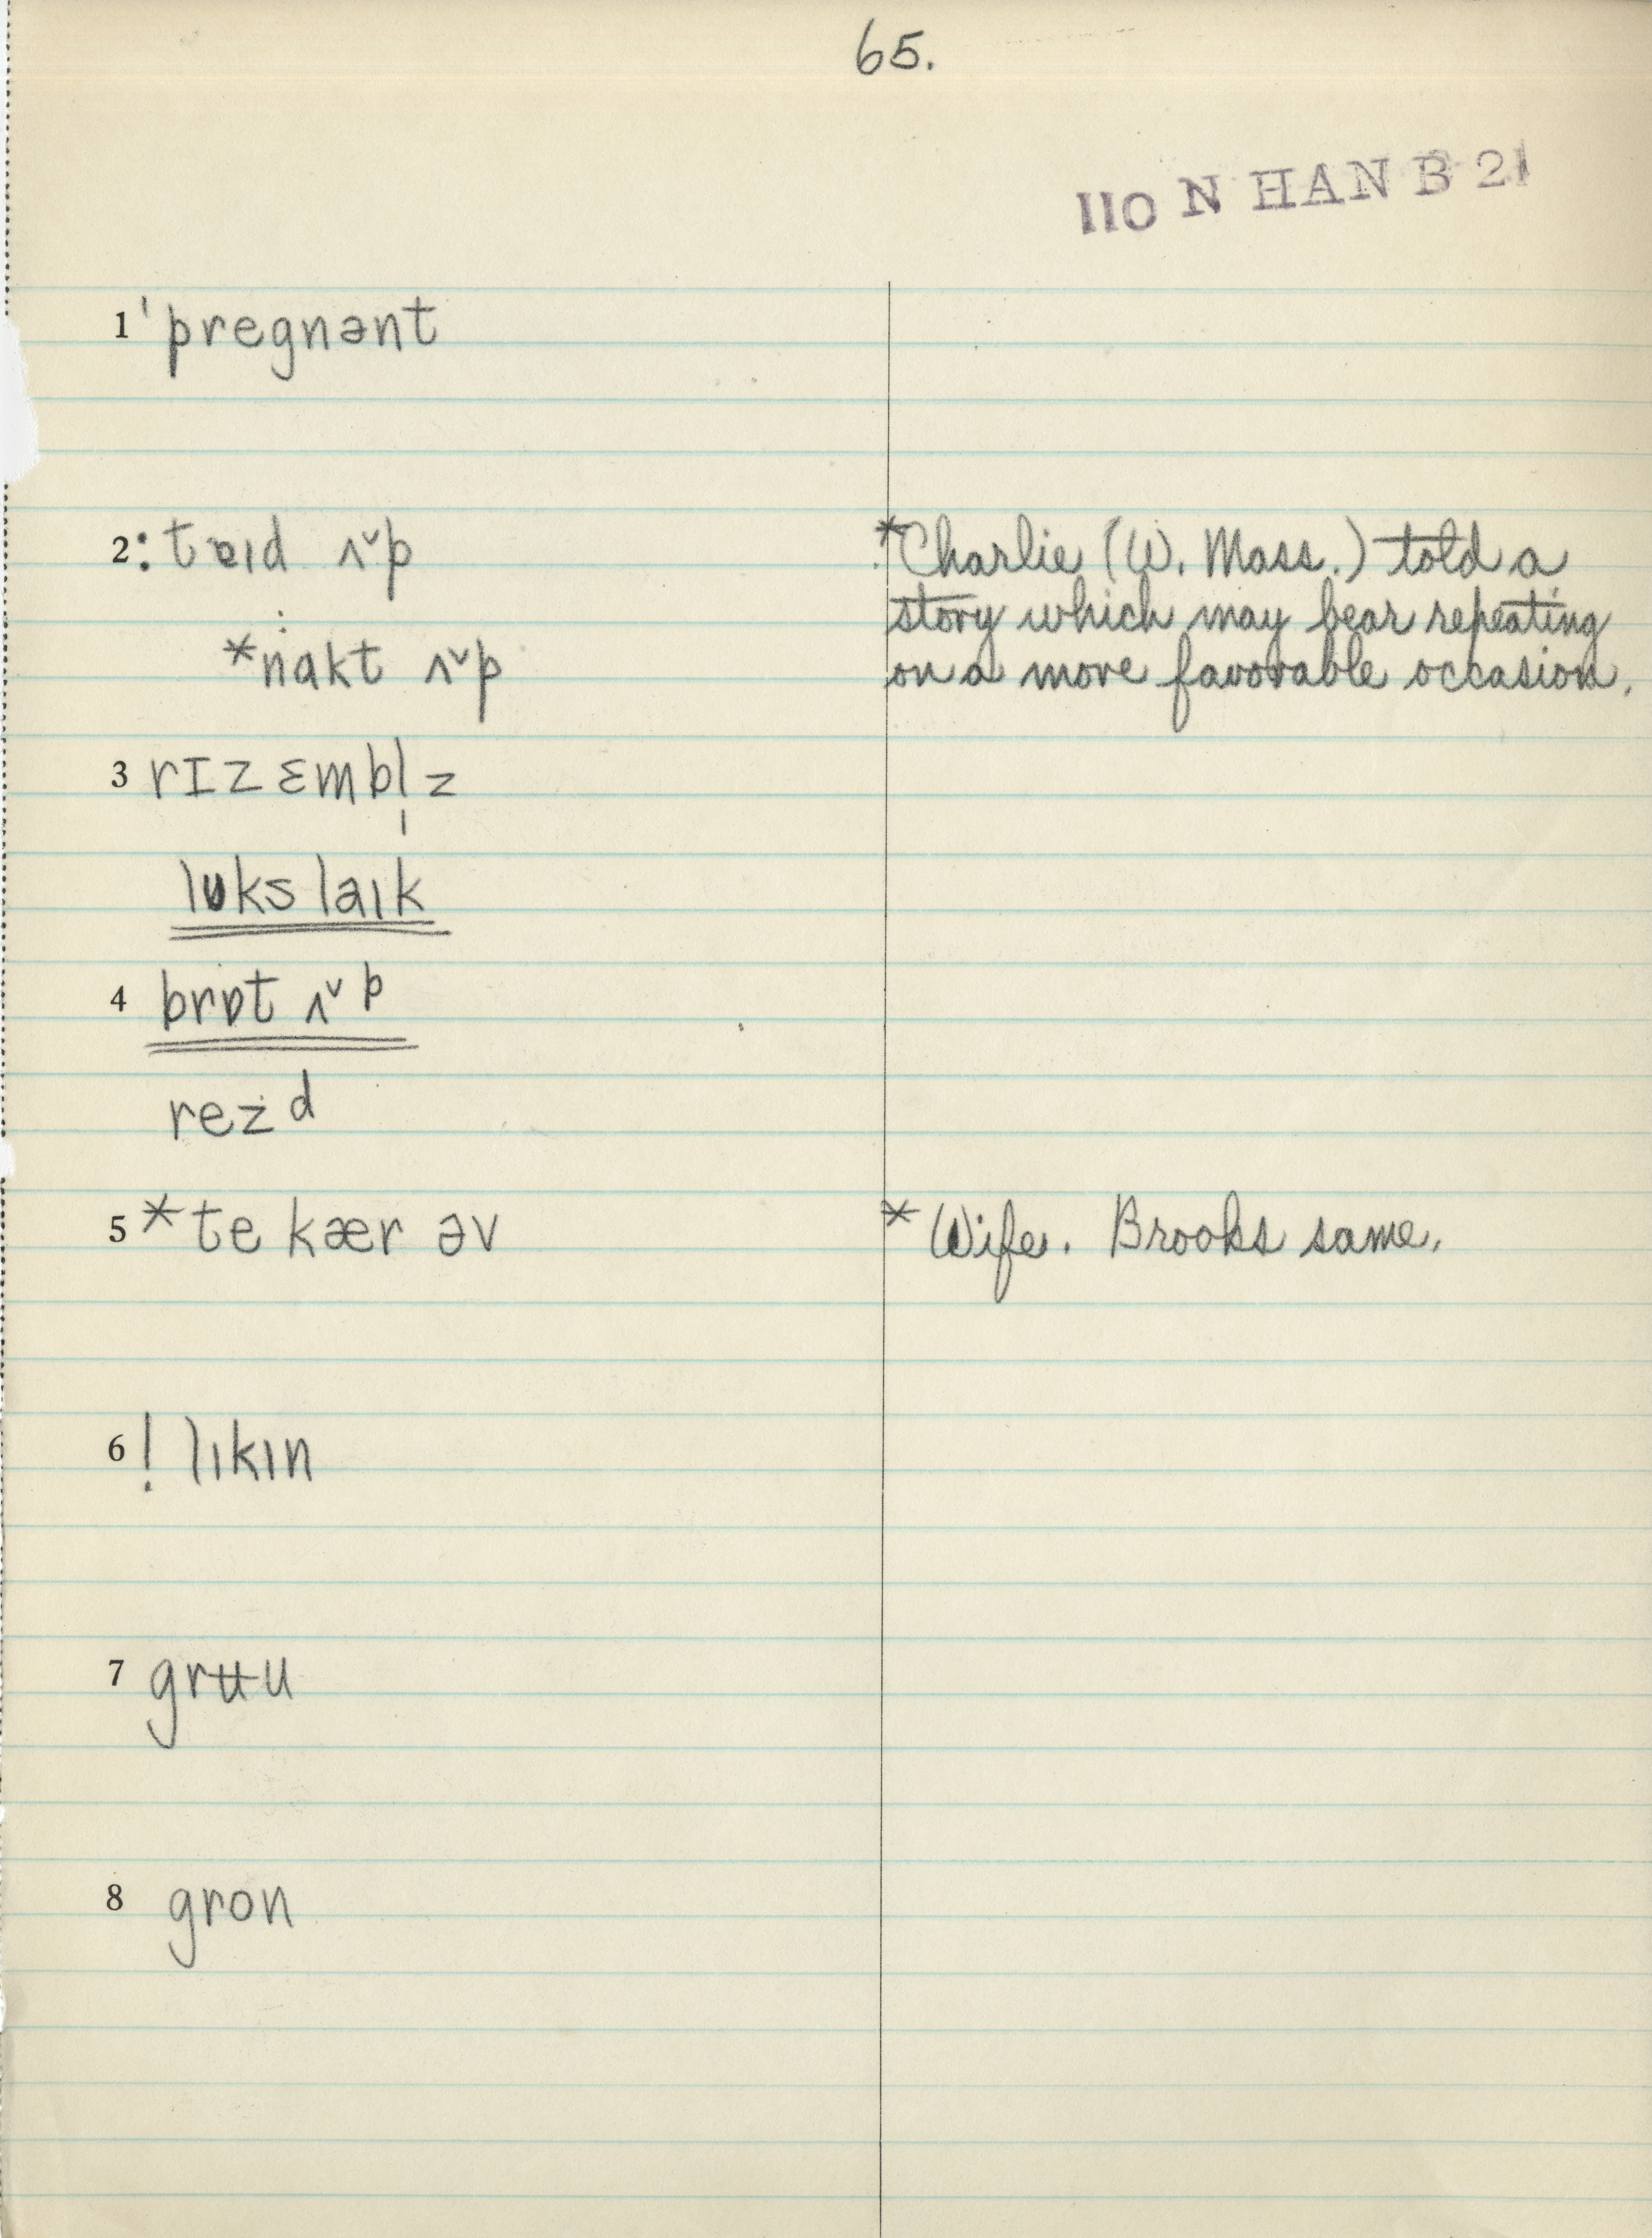 65.
110 N HAN B 21
1 ˈpregnənt
2 : tɐɪd ʌˇp
*Charlie (W. Mass.) told a
story which may bear repeating
: *nakt ʌˇp
on a more favorable occasion.
3 rɪzɛmbl̩z
lʊks laɪk
4 brɒt ʌˇp
rezd
5 *te kær əv
* Wife. Brooks same.
6 ! lɪkɪn
7 grʉu
8 gron